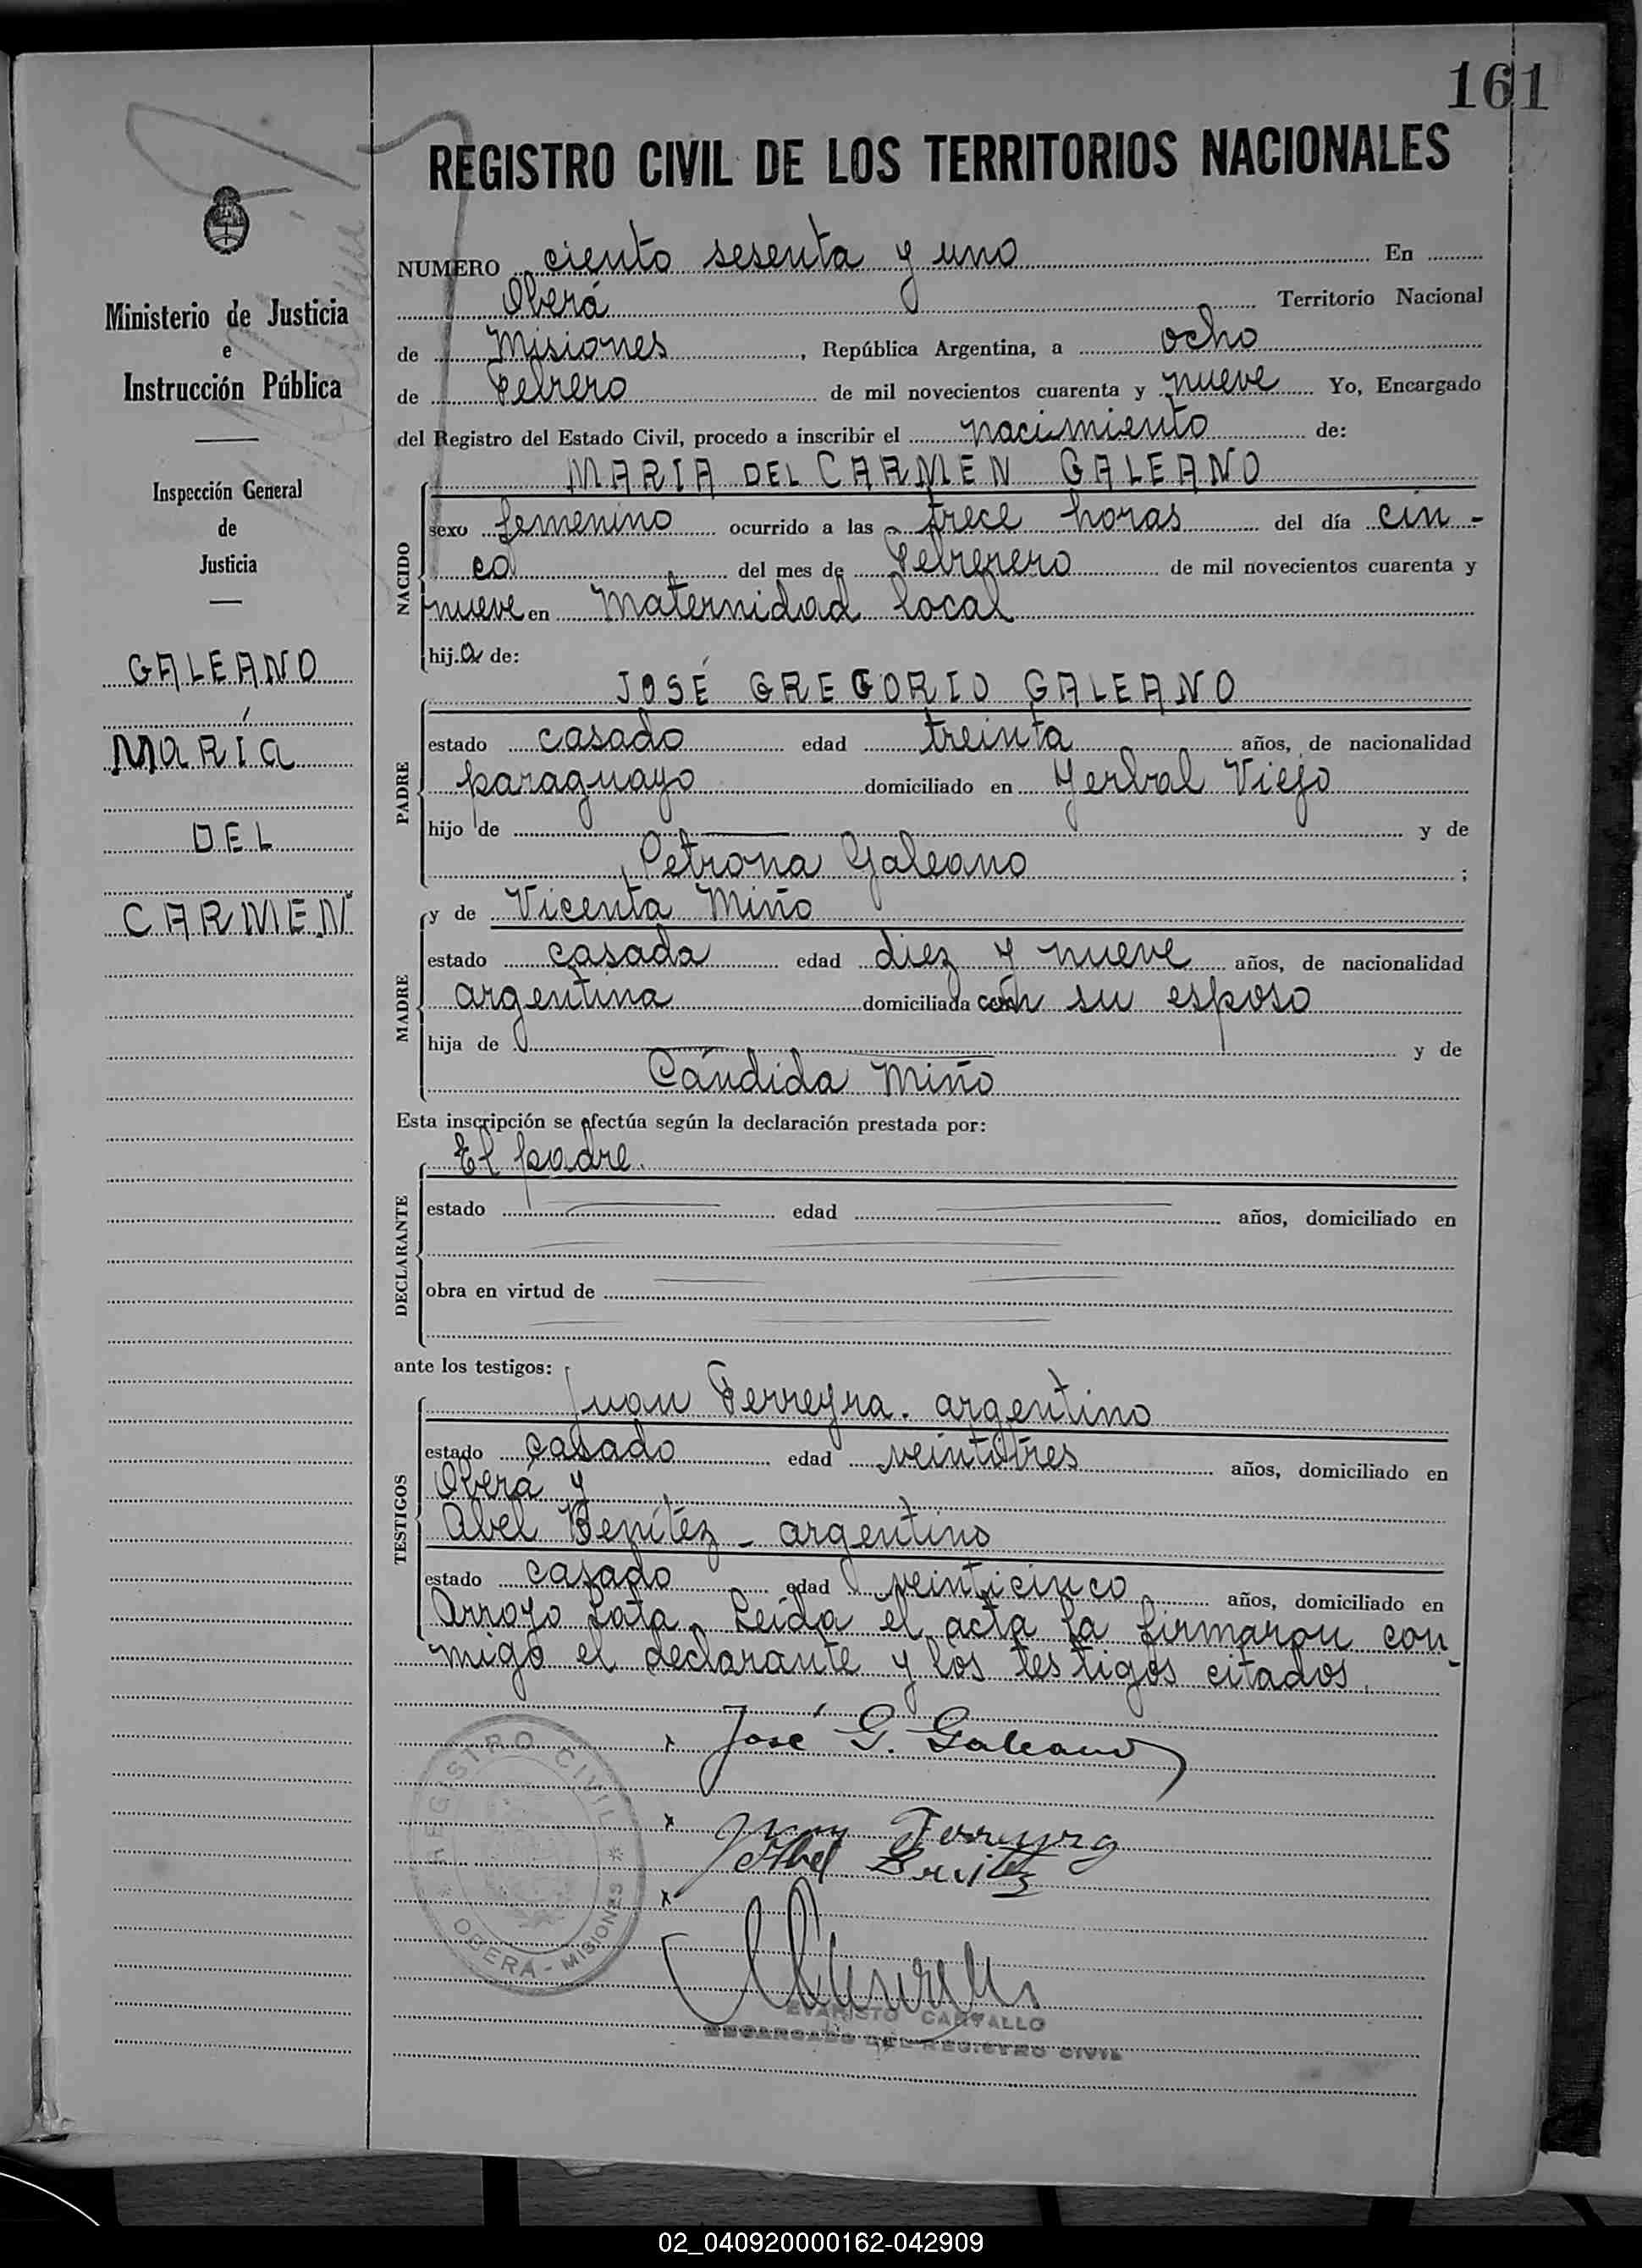 161
REGISTRO CIVIL DE LOS TERRITORIOS NACIONALES
Ministerio de Justicia
e
Instrucción Pública
Inspección General
de
Justicia
GALEANO
MARÍA
DEL
CARMEN
NUMERO ciento sesenta y uno En
Oberá Territorio Nacional
de Misiones, República Argentina, a ocho
de Febrero de mil novecientos cuarenta y nueve Yo, Encargado
del Registro del Estado Civil, procedo a inscribir el nacimiento de:
NACIDO
MARIA DEL CARMEN GALEANO
sexo femenino ocurrido a las trece horas del día cin-
co del mes de Febrerero de mil novecientos cuarenta y
nueve en Maternidad local
hija de:
PADRE
JOSÉ GREGORIO GALEANO
estado casado edad treinta años, de nacionalidad
paraguayo domiciliado en Yerbal Viejo
hijo de y de
Petrona Galeano ;
MADRE
y de Vicenta Miño
estado casada edad diez y nueve años, de nacionalidad
argentina domiciliada con su esposo
hija de y de
Cándida Miño
Esta inscripción se efectúa según la declaración prestada por:
DECLARANTE
El padre.
estado edad años, domiciliado en
obra en virtud de
ante los testigos:
TESTIGOS
Juan Ferreyra. argentino
estado casado edad veintitres años, domiciliado en
Oberá y
Abel Benítez - argentino
estado casado edad veinticinco años, domiciliado en
Arroyo Lata. Leída el acta la firmaron con-
migo el declarante y los testigos citados.
x José G. Galeano
x Juan Ferreyra
Abel Benitez
x
REGISTRO CIVIL
OBERÁ - MISIONES
EVARISTO CARVALLO
ENCARGADO DEL REGISTRO CIVIL
02_040920000162-042909